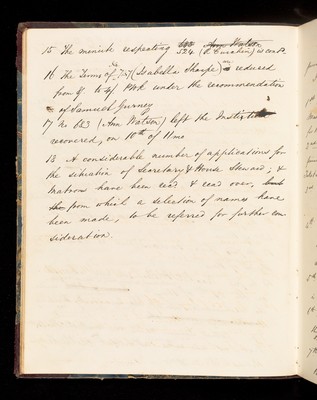 15 The minute respecting 524 (R. Buncahn) is contd.
16 The Terms of No 757 (Isabella Sharpe) are reduced
from 8/ to 4/ P Wk under the recommendation
of Samuel Gurney
17 No 133 (Ann Watson) left the Institution
recovered, on 10th of 11mo
18 A considerable number of applications for
the situation of Secretary & House Steward, &
Matron have been read & read over,
from which a selection of names have
been made, to be referred for further con
sideration.